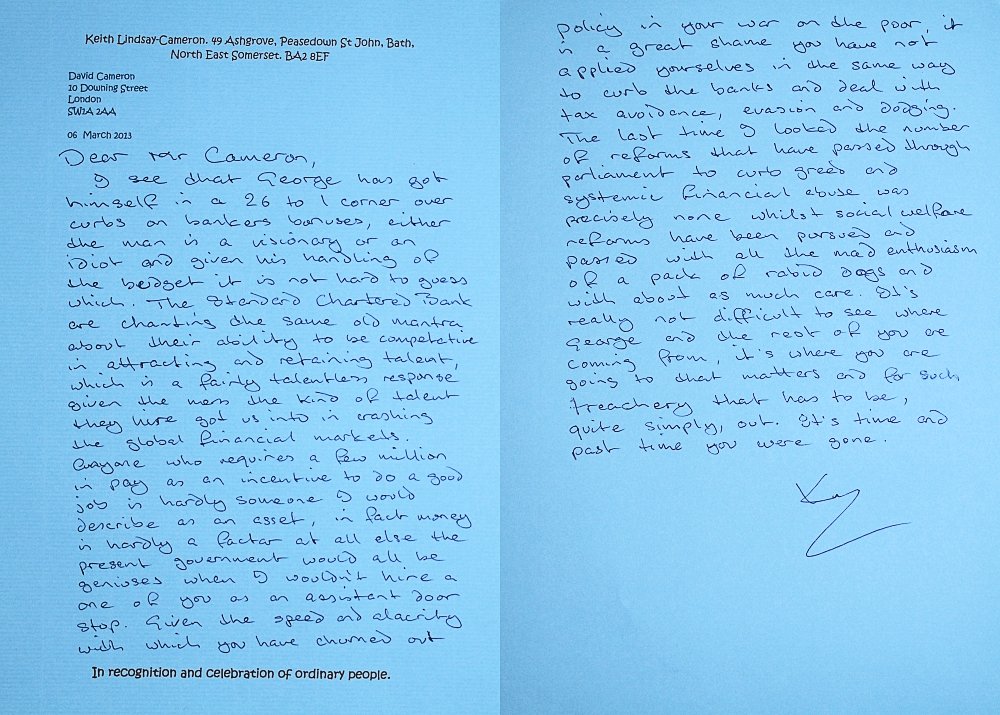 Keith Lindsay-Cameron. 49 Ashgrove, Peasedown St John, Bath,
North East Somerset. BA2 8EF
David Cameron
10 Downing Street
London
SW1A 2AA
06 March 2013
Dear Mr Cameron,
I see that George has got
himself in a 26 to 1 corner over
curbs on bankers bonuses, either
the man is a visionary or an
idiot and given his handling of
the budget it is not hard to guess
which. The Standard Chartered Bank
are chanting the same old mantra
about their ability to be competative
in attracting and retaining talent,
which is a fairly talentless response
given the mess the kind of talent
they hire got us into in crashing
the global financial markets.
Anyone who requires a few million
in pay as an incentive to do a good
job is hardly someone I would
describe as an asset, in fact money
is hardly a factor at all else the
present government would all be
geniuses when I wouldn't hire a
one of you as an assistant door
stop. Given the speed and alacrity
with which you have churned out
In recognition and celebration of ordinary people.
policy in your war on the poor, it
is a great shame you have not
applied yourselves in the same way
to curb the banks and deal with
tax avoidance, evasion and dodging.
The last time I looked the number
of reforms that have passed through
parliament to curb greed and
systemic financial abuse was
precisely none whilst social welfare
reforms have been pursued and
passed with all the mad enthusiasm
of a pack of rabid dogs and
with about as much care. It's
really not difficult to see where
George and the rest of you are
coming from, it's where you are
going to that matters and for such
treachery that has to be,
quite simply, out. It's time and
past time you were gone.